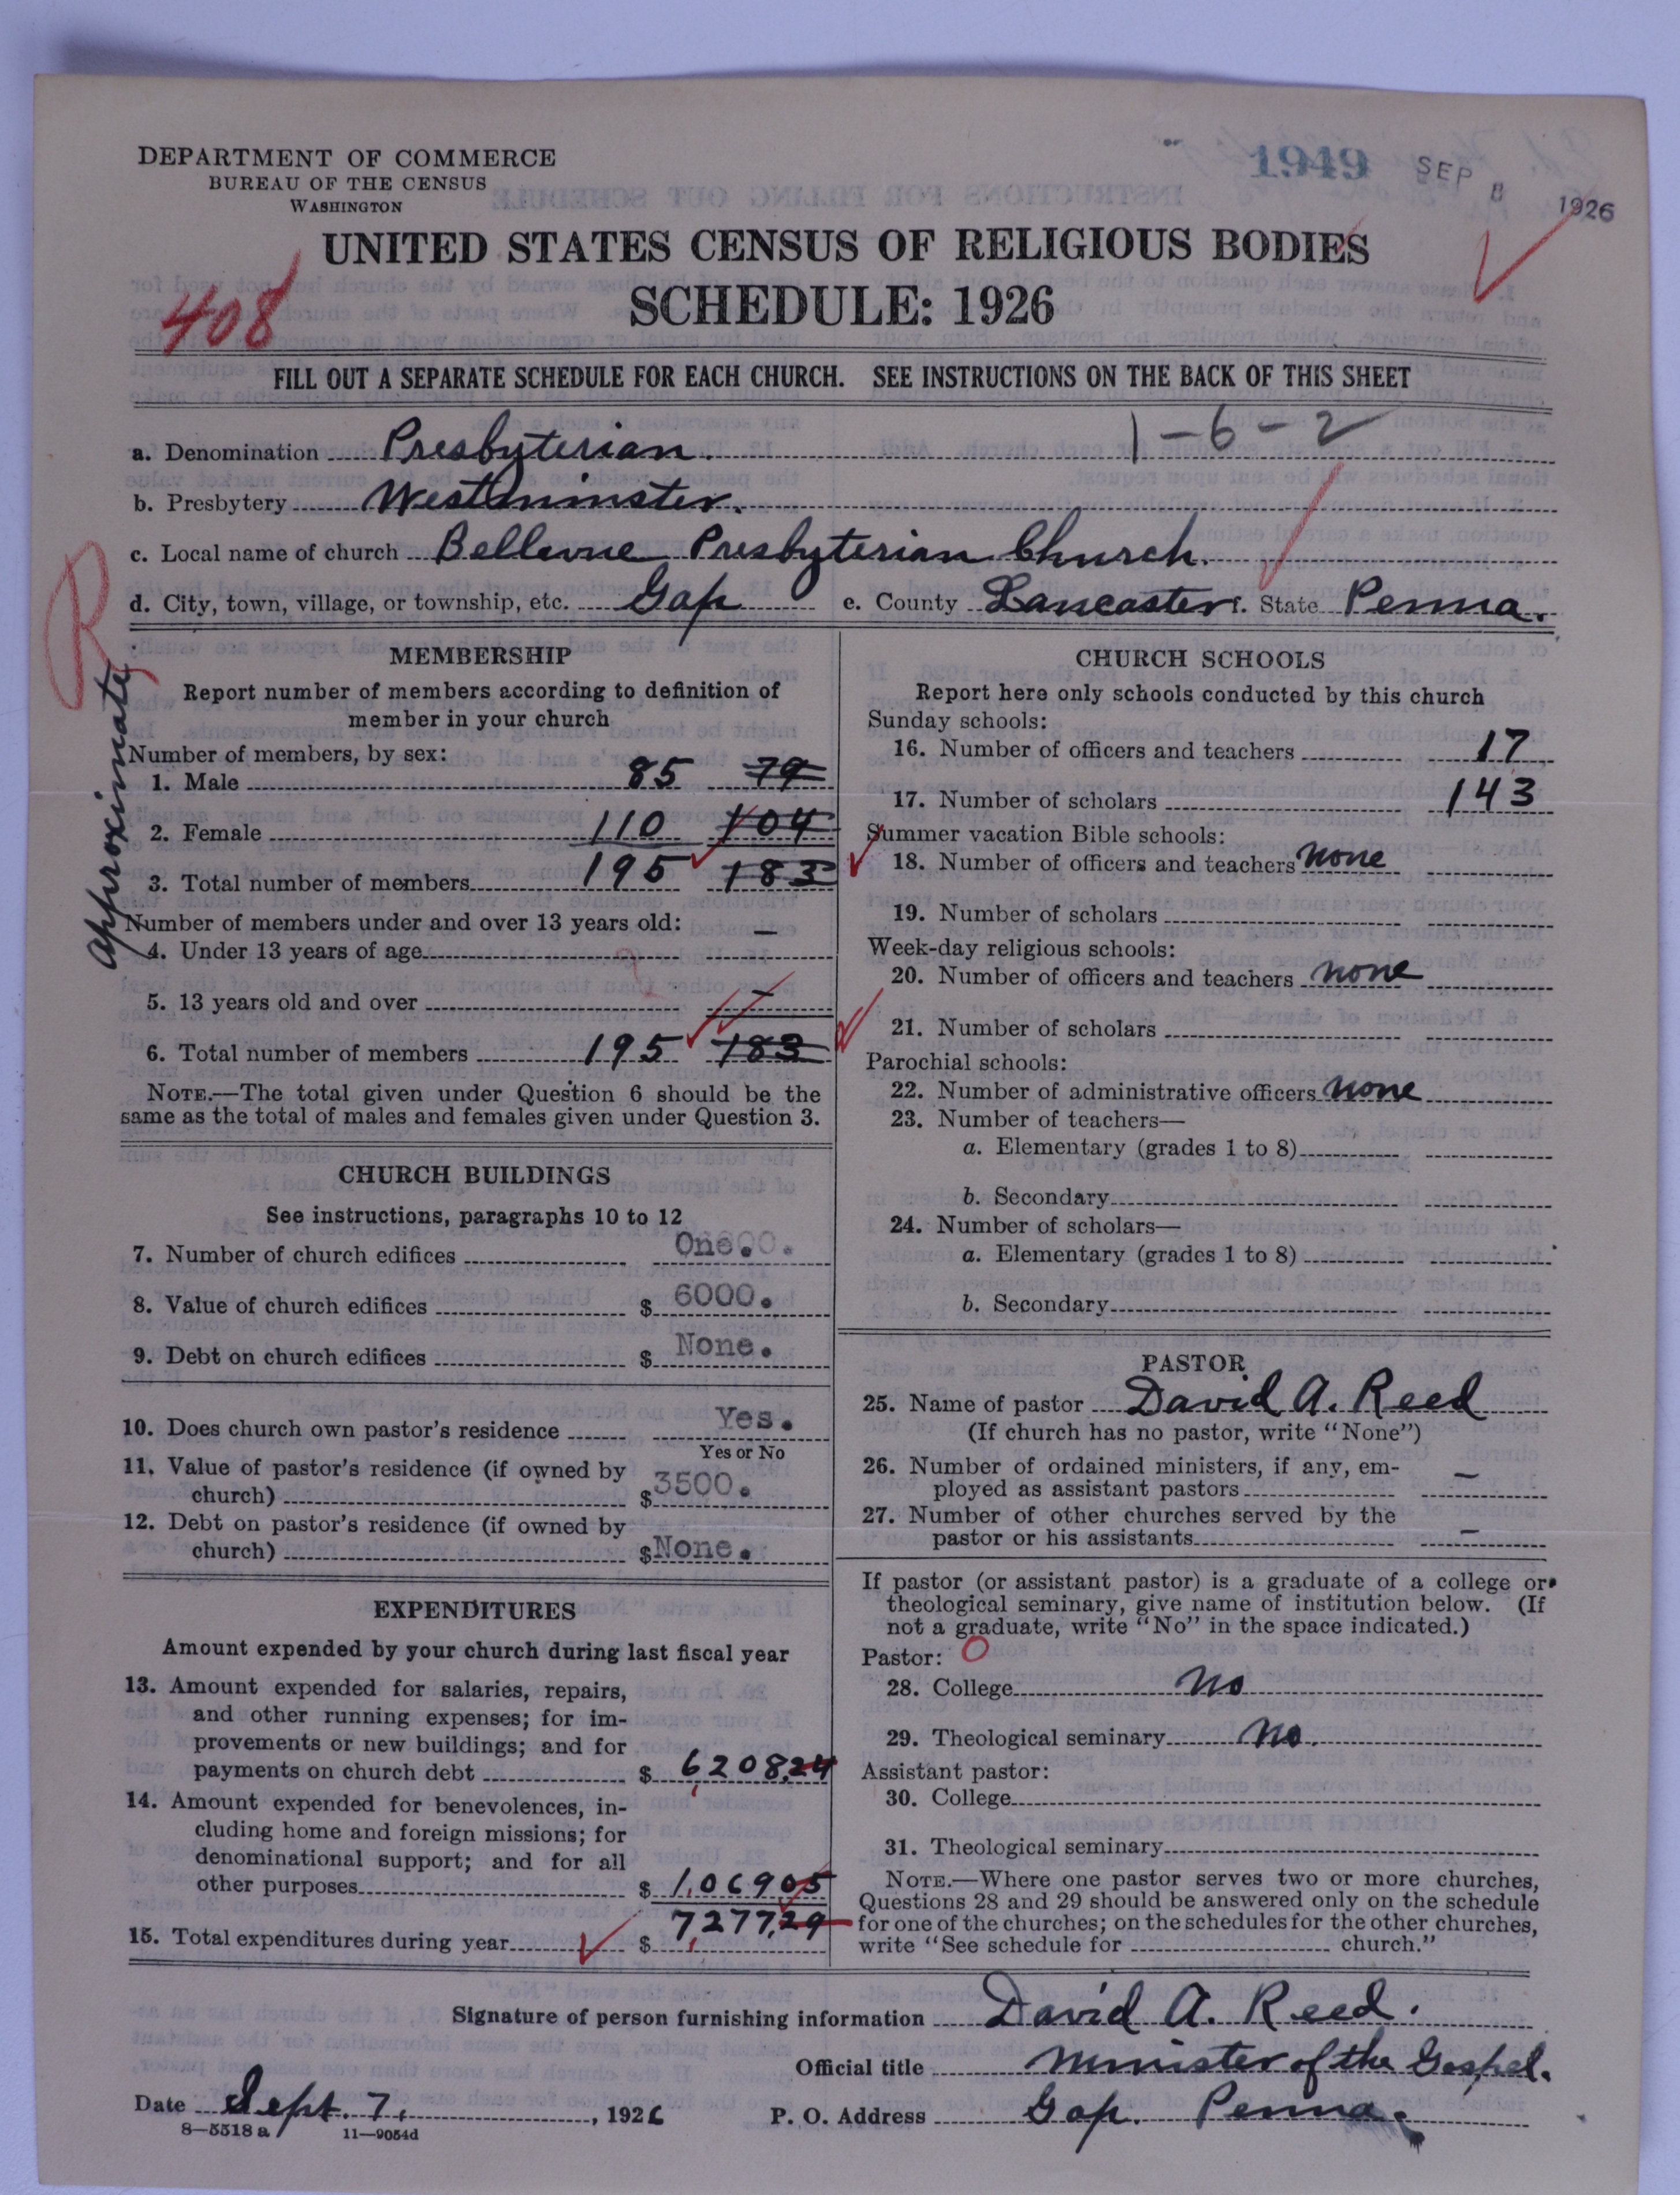 DEPARTMENT OF COMMERCE
BUREAU OF THE CENSUS
WASHINGTON
1949 SEP 8 1926
UNITED STATES CENSUS OF RELIGIOUS BODIES
SCHEDULE: 1926
408
FILL OUT A SEPARATE SCHEDULE FOR EACH CHURCH. SEE INSTRUCTIONS ON THE BACK OF THIS SHEET
1-6-2
a. Denomination Presbyterian.
b. Presbytery Westminster.
c. Local name of church Bellevue Presbyterian Church.
d. City, town, village, or township, etc. Gap e. County Lancaster. State Penna.
R
approximate
MEMBERSHIP
Report number of members according to definition of
member in your church
Number of members, by sex:
1. Male 85 79
2. Female 110 104
3. Total number of members 195 183
Number of members under and over 13 years old:
4. Under 13 years of age —
5. 13 years old and over —
6. Total number of members 195 183
NOTE.—The total given under Question 6 should be the
same as the total of males and females given under Question 3.
CHURCH BUILDINGS
See instructions, paragraphs 10 to 12
7. Number of church edifices One.
8. Value of church edifices $ 6000.
9. Debt on church edifices $ None.
10. Does church own pastor's residence Yes.
Yes or No
11. Value of pastor's residence (if owned by
church) $ 3500.
12. Debt on pastor's residence (if owned by
church) $ None.
EXPENDITURES
Amount expended by your church during last fiscal year
13. Amount expended for salaries, repairs,
and other running expenses; for im-
provements or new buildings; and for
payments on church debt $ 6208.24
14. Amount expended for benevolences, in-
cluding home and foreign missions; for
denominational support; and for all
other purposes $ 1,06905
15. Total expenditures during year $ 7,277.29
CHURCH SCHOOLS
Report here only schools conducted by this church
Sunday schools:
16. Number of officers and teachers 17
17. Number of scholars 143
Summer vacation Bible schools:
18. Number of officers and teachers none
19. Number of scholars
Week-day religious schools:
20. Number of officers and teachers none
21. Number of scholars
Parochial schools:
22. Number of administrative officers none
23. Number of teachers—
a. Elementary (grades 1 to 8)
b. Secondary
24. Number of scholars—
a. Elementary (grades 1 to 8)
b. Secondary
PASTOR
25. Name of pastor David A. Reed
(If church has no pastor, write "None")
26. Number of ordained ministers, if any, em-
ployed as assistant pastors —
27. Number of other churches served by the
pastor or his assistants —
If pastor (or assistant pastor) is a graduate of a college or
theological seminary, give name of institution below. (If
not a graduate, write "No" in the space indicated.)
Pastor: O
28. College no
29. Theological seminary no.
Assistant pastor:
30. College
31. Theological seminary
NOTE.—Where one pastor serves two or more churches,
Questions 28 and 29 should be answered only on the schedule
for one of the churches; on the schedules for the other churches,
write "See schedule for church."
Signature of person furnishing information David A. Reed.
Official title Minister of the Gospel.
Date Sept. 7, 1926 P. O. Address Gap. Penna.
8—5518 a 11—9054d